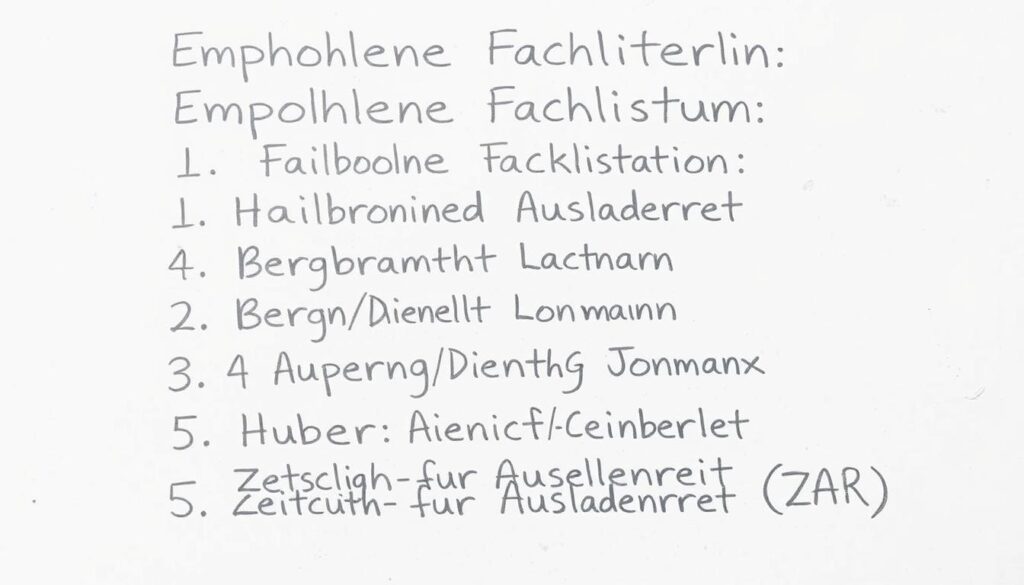 Emphohlene Fachliterlin:
Empolhlene Fachlistum:
1. Failboolne Facklistation:
1. Hailbronined Ausladerret
4. Bergbramtht Lactnarn
2. Bergn/Dienellt Lonmainn
3. 4 Auperng/DienthG Jonmanx
5. Huber: Aienicf/-Ceinberlet
Zetscligh-fur Ausellenreit (ZAR)
5. Zeitcuth- fur Ausladenrret